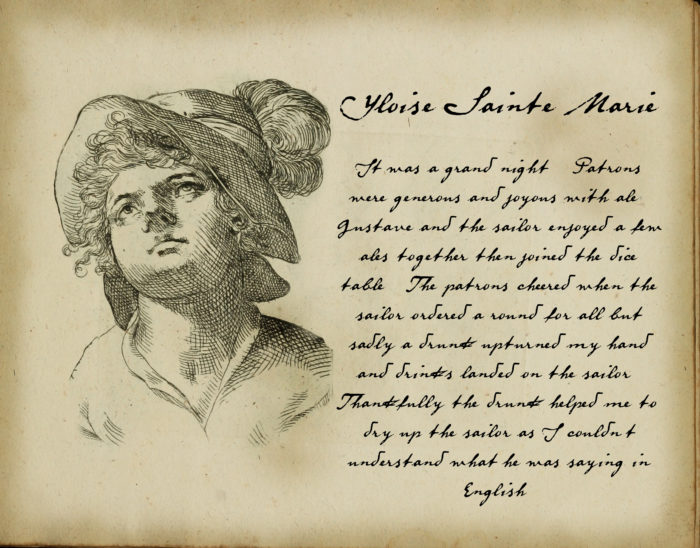 Yloise Sainte Marie
It was a grand night Patrons
were generous and joyous with ale
Gustave and the sailor enjoyed a few
ales together then joined the dice
table The patrons cheered when the
sailor ordered a round for all but
sadly a drunk upturned my hand
and drinks landed on the sailor
Thankfully the drunk helped me to
dry up the sailor as I couldn t
understand what he was saying in
English